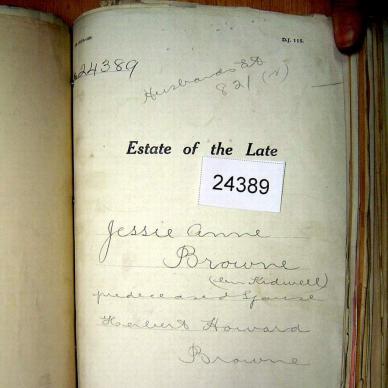 D.J. 115.
24389
Husbands Est
821 (N)
Estate of the Late
24389
Jessie Anne
Browne
(born Kidwell)
predeceased Spouse
Herbert Howard
Browne